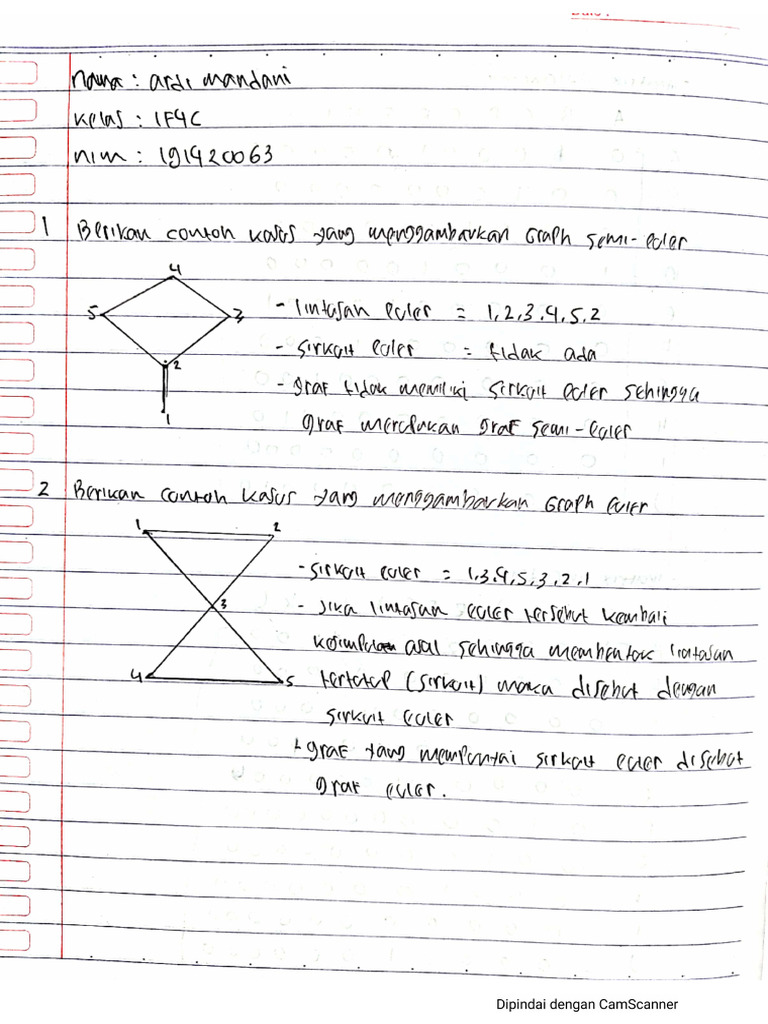 Nama : ardi mandani
Kelas : IF4C
nim : 191420063
1 Berikan contoh kasus yang menggambarkan Graph semi-euler
4
5
3
2
1
- lintasan euler = 1,2,3,4,5,2
- sirkuit euler = tidak ada
- graf tidak memiliki sirkuit euler sehingga
graf merupakan graf semi-euler
2 Berikan contoh kasus yang menggambarkan Graph euler
1
2
3
4
5
- sirkuit euler = 1,3,4,5,3,2,1
- Jika lintasan euler tersebut kembali
asal sehingga membentuk lintasan
tertutup (sirkuit) maka disebut dengan
sirkuit euler
- graf yang mempunyai sirkuit euler disebut
graf euler.
Dipindai dengan CamScanner